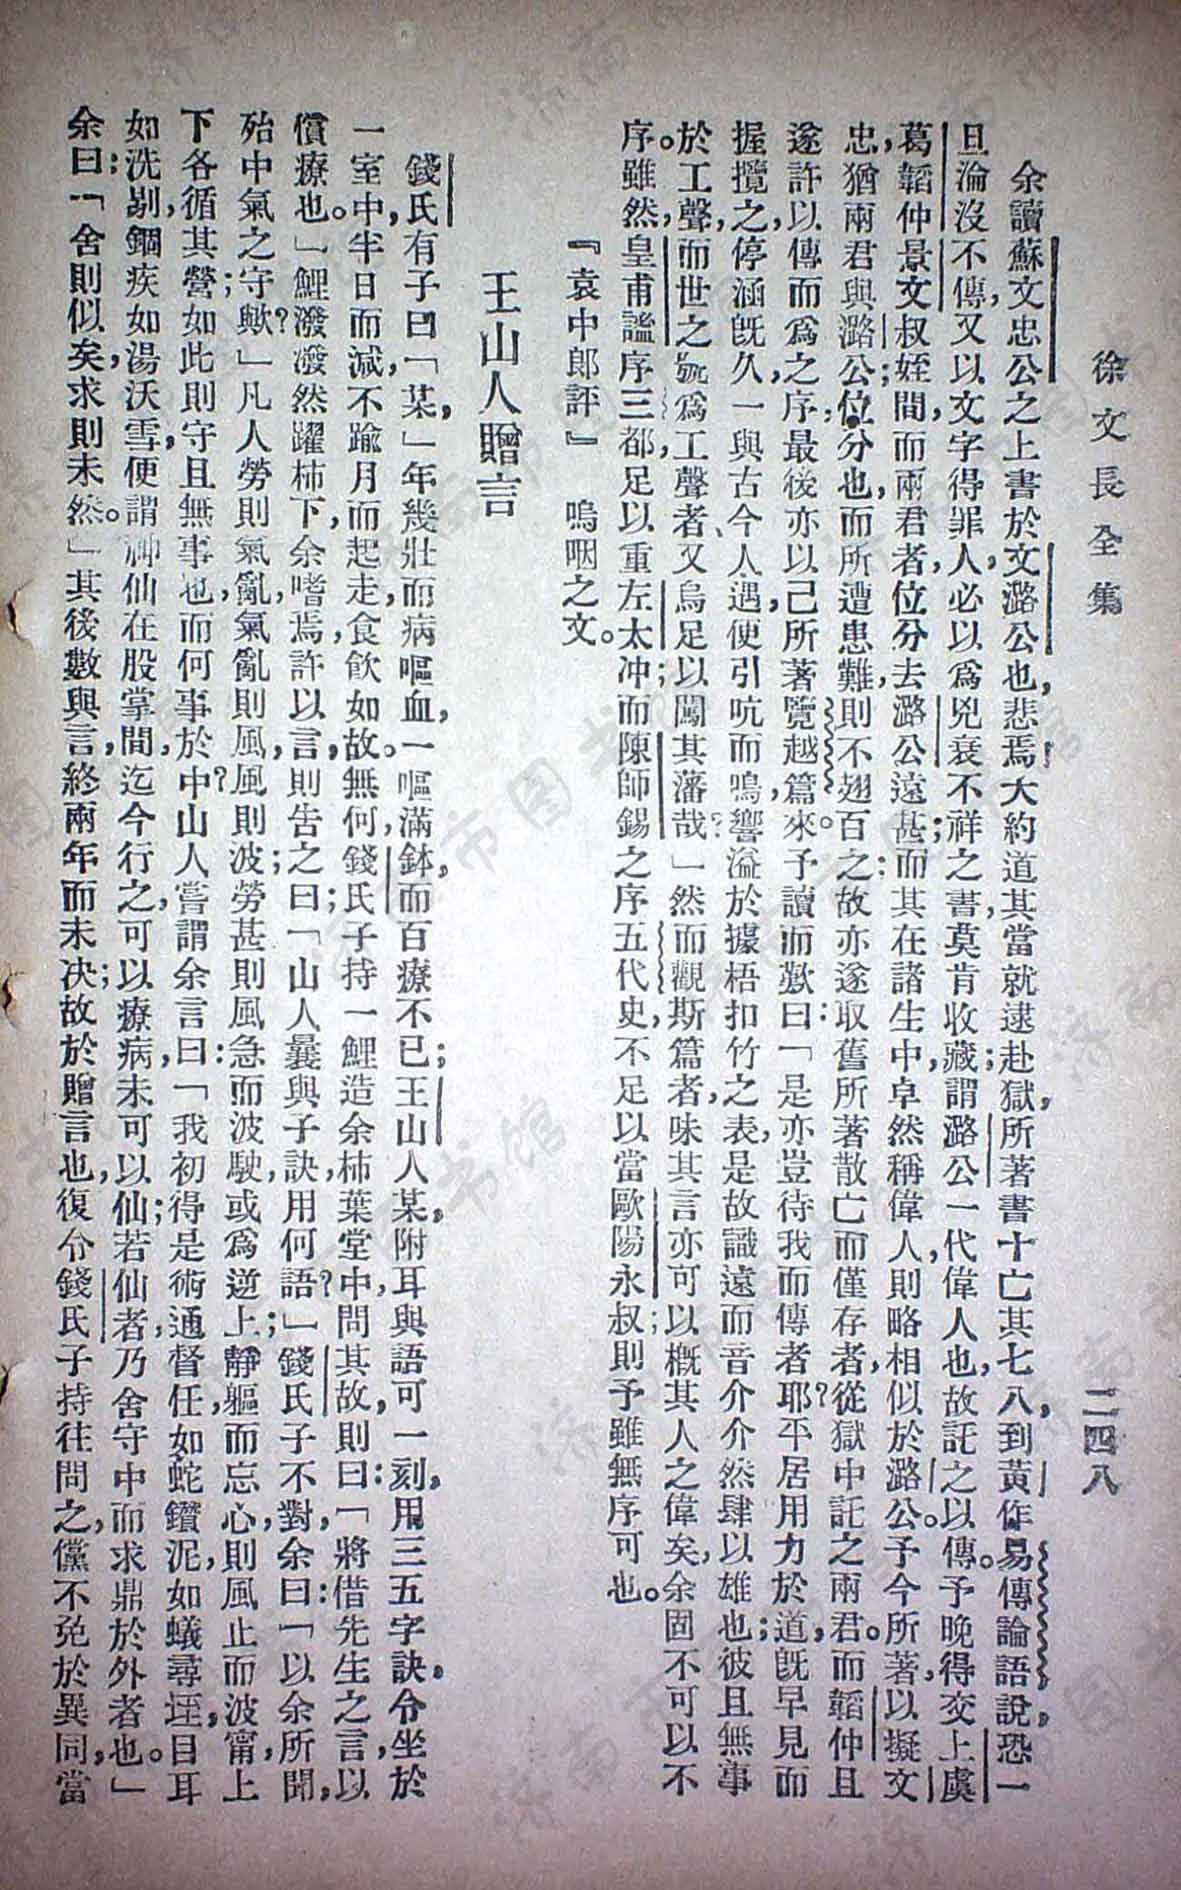 徐文長全集
二四八
余讀蘇文忠公之上書於文潞公也，悲焉，大約道其當就逮赴獄，所著書十亡其七八，到黃作易傳論語說，恐一
旦淪沒不傳，又以文字得罪，人必以爲兇衰不祥之書，莫肯收藏；謂潞公一代偉人也，故託之以傳。予晚得交上虞
葛韜仲景文叔姪間，而兩君者位分去潞公遠甚；而其在諸生中，卓然稱偉人，則略相似於潞公。予今所著，以擬文
忠，猶兩君與潞公；位分也，而所遭患難，則不翅百之故亦遂取舊所著散亡而僅存者，從獄中託之兩君。而韜仲且
遂許以傳，而爲之序，最後亦以己所著覽越篇來。予讀而歎曰：「是亦豈待我而傳者耶？平居用力於道，既早見而
握攬之，停涵既久，一與古今人遇，便引吭而鳴，響溢於據梧扣竹之表，是故識遠而音介介然肆以雄也；彼且無事
於工聲，而世之號爲工聲者，又烏足以闖其藩哉？」然而觀斯篇者，味其言，亦可以概其人之偉矣，余固不可以不
序。雖然，皇甫謐序三都，足以重左太冲；而陳師錫之序五代史，不足以當歐陽永叔；則予雖無序可也。
『袁中郎評』　嗚咽之文。
王山人贈言
錢氏有子曰「某」，年幾壯而病嘔血，一嘔滿鉢，而百療不已；王山人某，附耳與語可一刻，用三五字訣，令坐於
一室中，半日而減，不踰月而起走，食飲如故。無何，錢氏子持一鯉造余柿葉堂中，問其故，則曰：「將借先生之言，以
償療也。」鯉潑潑然躍柿下，余嗜焉，許以言，則告之曰：「山人曩與子訣用何語？」錢氏子不對，余曰：「以余所聞，
殆中氣之守歟？」凡人勞則氣亂，氣亂則風，風則波，勞甚則風急而波駛，或爲逆上；靜軀而忘心，則風止而波甯，上
下各循其營，如此則守且無事也，而何事於中？山人嘗謂余言曰：「我初得是術，通督任，如蛇鑽泥，如蟻尋垤，目耳
如洗，剔錮疾如湯沃雪，便謂神仙在股掌間，迄今行之，可以療病，未可以仙；若仙者，乃舍守中而求鼎於外者也。」
余曰：「舍則似矣，求則未然。」其後數與言，終兩年而未決；故於贈言也，復令錢氏子持往問之，儻不免於異同，當